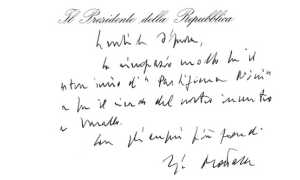 Il Presidente della Repubblica
Gentile Signora,
La ringrazio molto per il
"Partigiana
e per il ricordo del nostro incontro
a Varallo.
Con gli auguri più